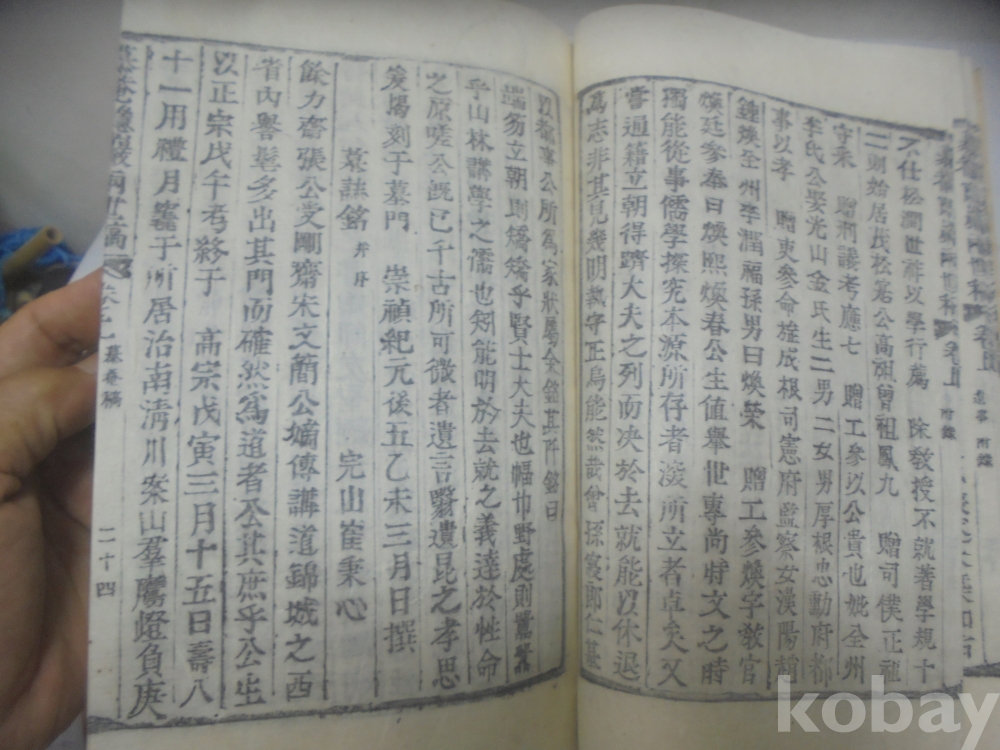 不仕松潤世
以學行薦 除敎授不就著學規十
二則始居茂松
公高祖曾祖鳳九 贈司僕正祖
守
贈
考應七 贈工參以公貴也妣全州
李氏公娶光山金氏生二男二女男厚根忠勳府都
事以孝 贈吏參命旌成根司憲府監察女漢陽趙
鍾煥全州李潤福孫男曰煥榮 贈工參煥字敎官
煥廷參奉曰煥熙煥春公生値舉世專尙時文之時
獨能從事儒學探究本源所存者深所立者直矣又
嘗通籍立朝得躋大夫之列而决於去就能以休退
爲志非其見幾明執守正烏能然哉曾孫寢郎仁基
以
公所爲家狀屬余銘其阡銘曰
端笏立朝則矯矯乎賢士大夫也幅巾野處則
乎山林講學之儒也矧能明於去就之義達於性命
之原嗟公旣已千古所可徵者遺言緊遺昆之孝思
爰揭刻于墓門 崇禎紀元後五乙未三月日撰
完山崔秉心
墓誌銘 幷序
餘力齋張公受剛齋宋文簡公嫡傳講道錦城之西
省內譽髦多出其門而確然爲道者公其庶乎公生
以正宗戊午考終于 高宗戊寅三月十五日壽八
十一用禮月窆于所居治南淸川案山羣鷹嶝負庚
卷之
墓表 稿
二十四
kobay